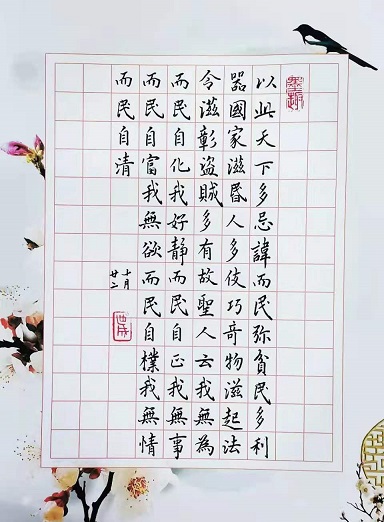 墨趣
以此天下多忌諱而民弥貧民多利
器國家滋昏人多伎巧奇物滋起法
令滋彰盗賊多有故聖人云我無為
而民自化我好静而民自正我無事
而民自富我無欲而民自樸我無情
而民自清
十月
廿二